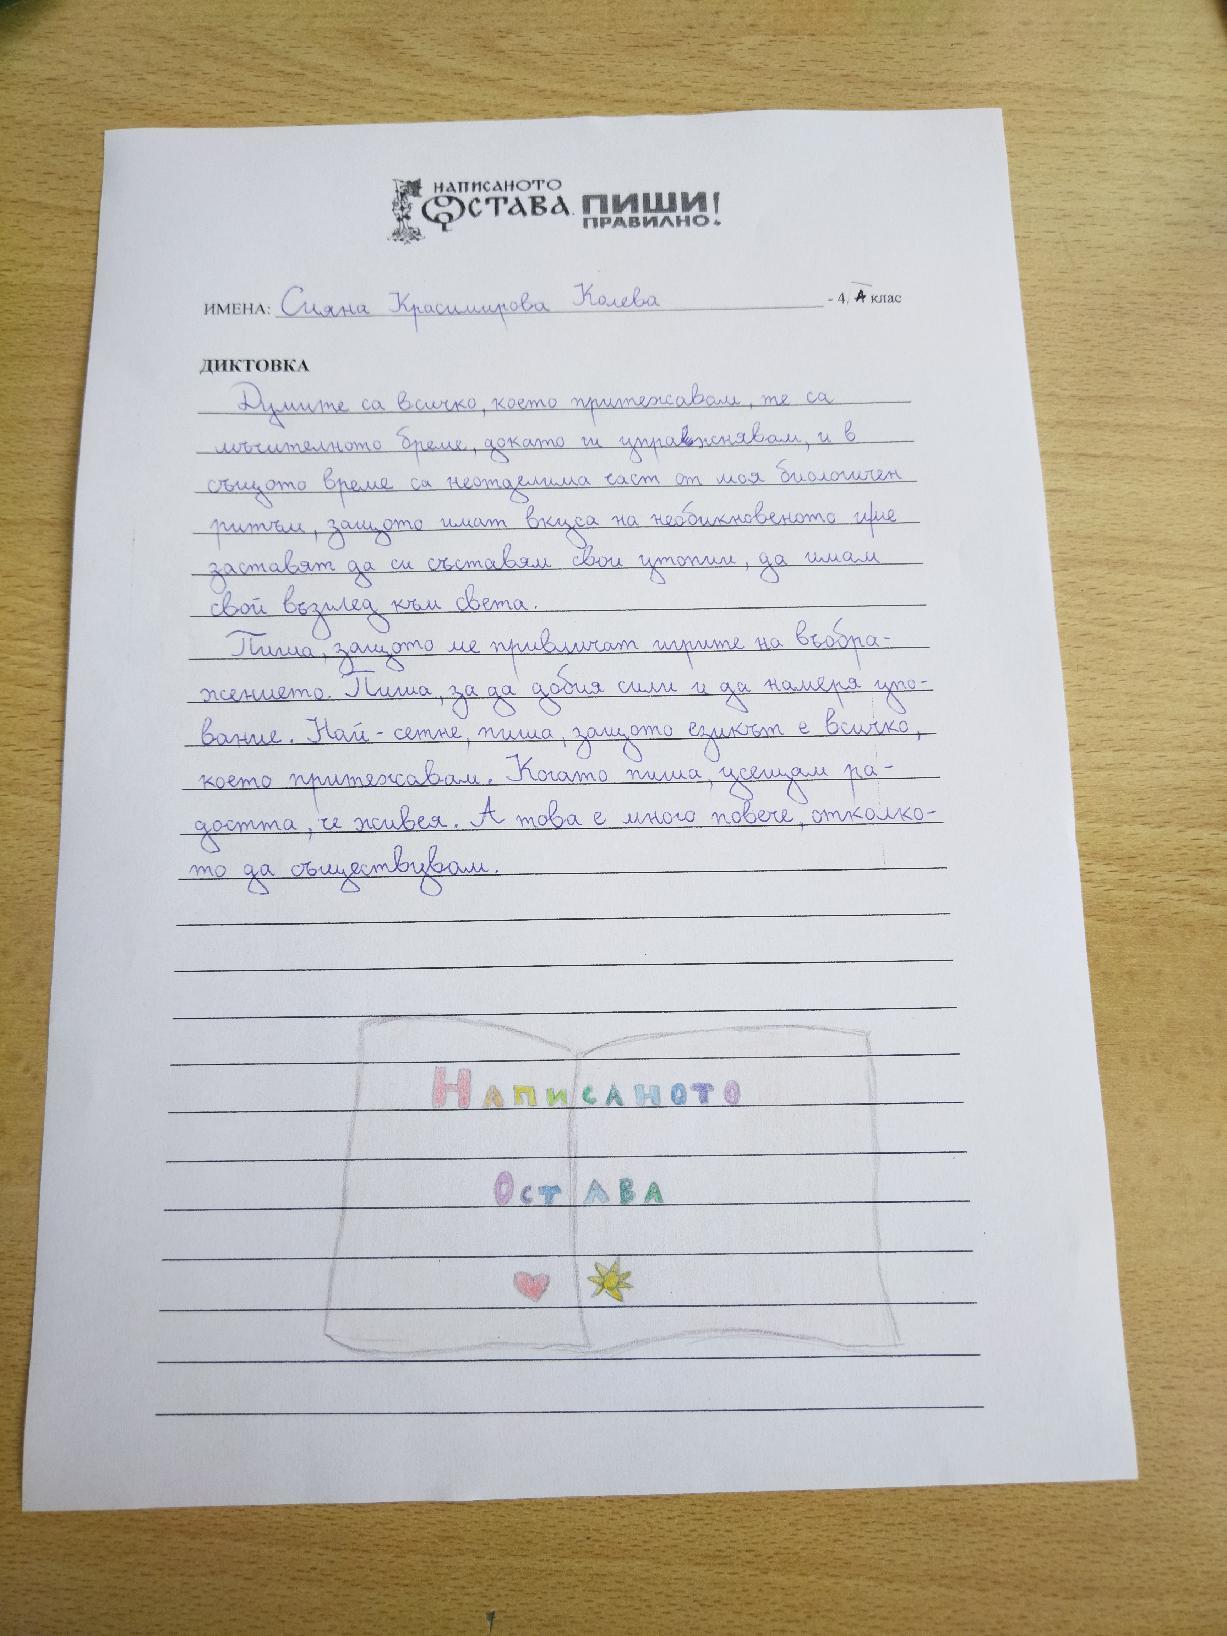 НАПИСАНОТО
ОСТАВА. ПИШИ
ПРАВИЛНО!
ИМЕНА: Сияна Красимирова Колева - 4. А клас
ДИКТОВКА
Думите са всичко, което притежавам, те са
мъчителното бреме, докато ги упражнявам, и в
същото време са неотделима част от моя биологичен
ритъм, защото имат вкуса на необикновеното и ме
заставят да си съставям свои утопии, да имам
свой възглед към света.
Пиша, защото ме привличат игрите на въобра-
жението. Пиша, за да добия сили и да намеря упо-
вание. Най-сетне, пиша, защото езикът е всичко,
което притежавам. Когато пиша, усещам ра-
достта, че живея. А това е много повече, отколко-
то да съществувам.
НАПИСАНОТО
ОСТАВА